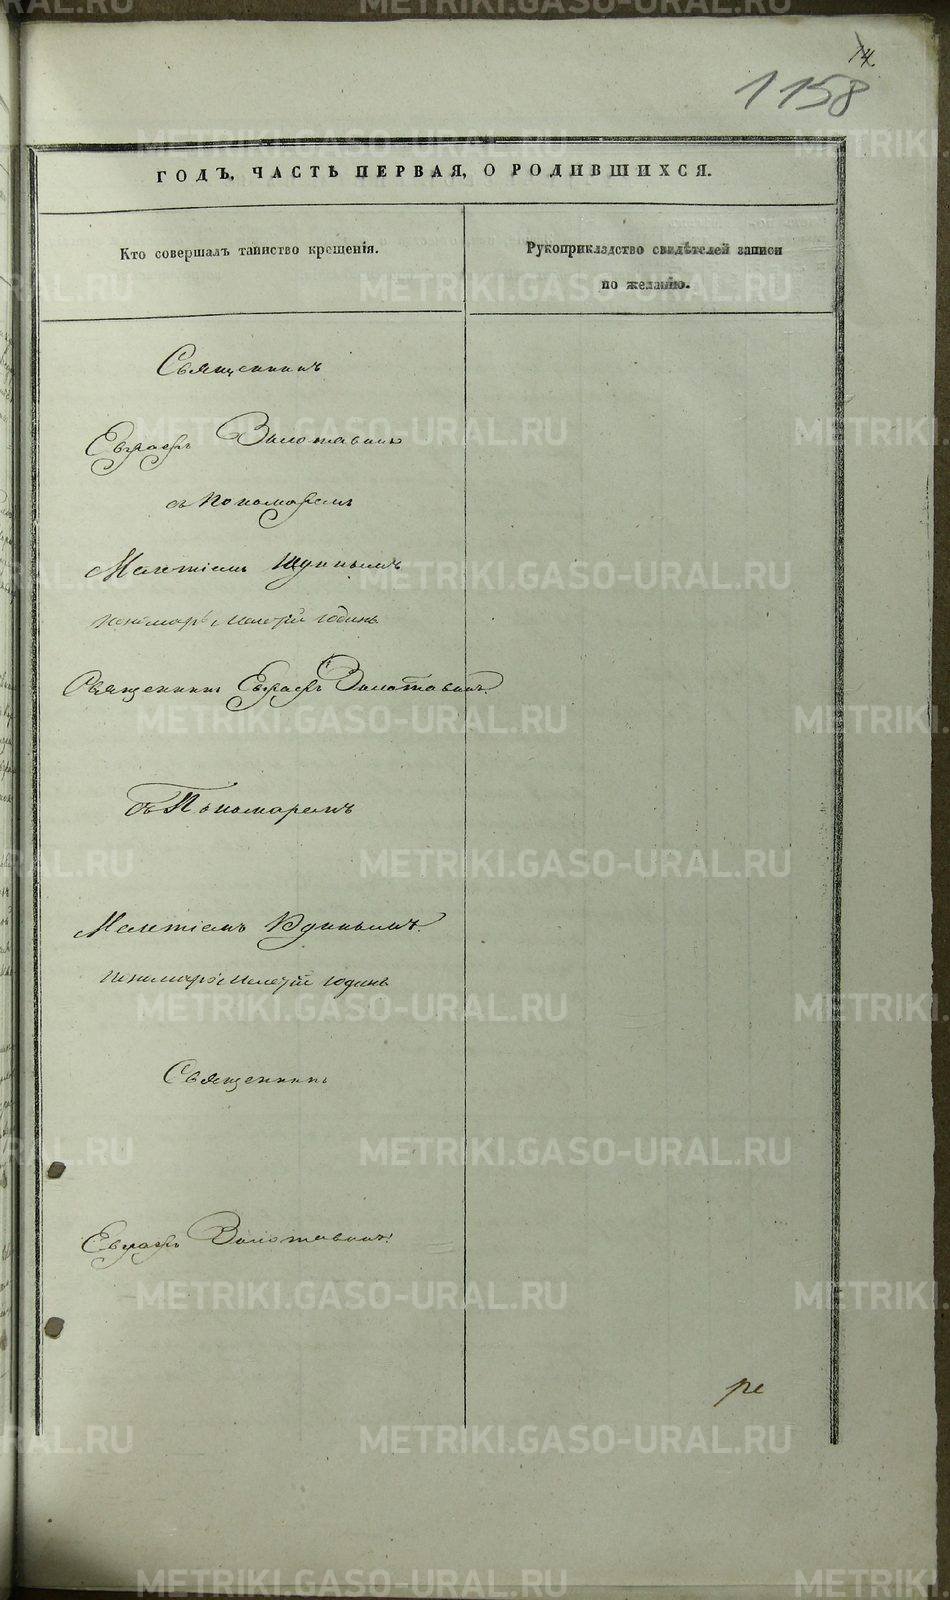 14.
1158
ГОДЪ, ЧАСТЬ ПЕРВАЯ, О РОДИВШИХСЯ.
Кто совершалъ таинство крещенія.
Рукоприкладство свидѣтелей записи
по желанію.
Священникъ
Евграфъ Золотавинъ
съ Пономаремъ
Мелетіемъ Юдинымъ
пономарь Мелетій Юдинъ
Священникъ Евграфъ Золотавинъ
съ Пономаремъ
Мелетіемъ Юдинымъ.
пономарь Мелетій Юдинъ
Священникъ
Евграфъ Золотавинъ.
ре
METRIKI.GASO-URAL.RU